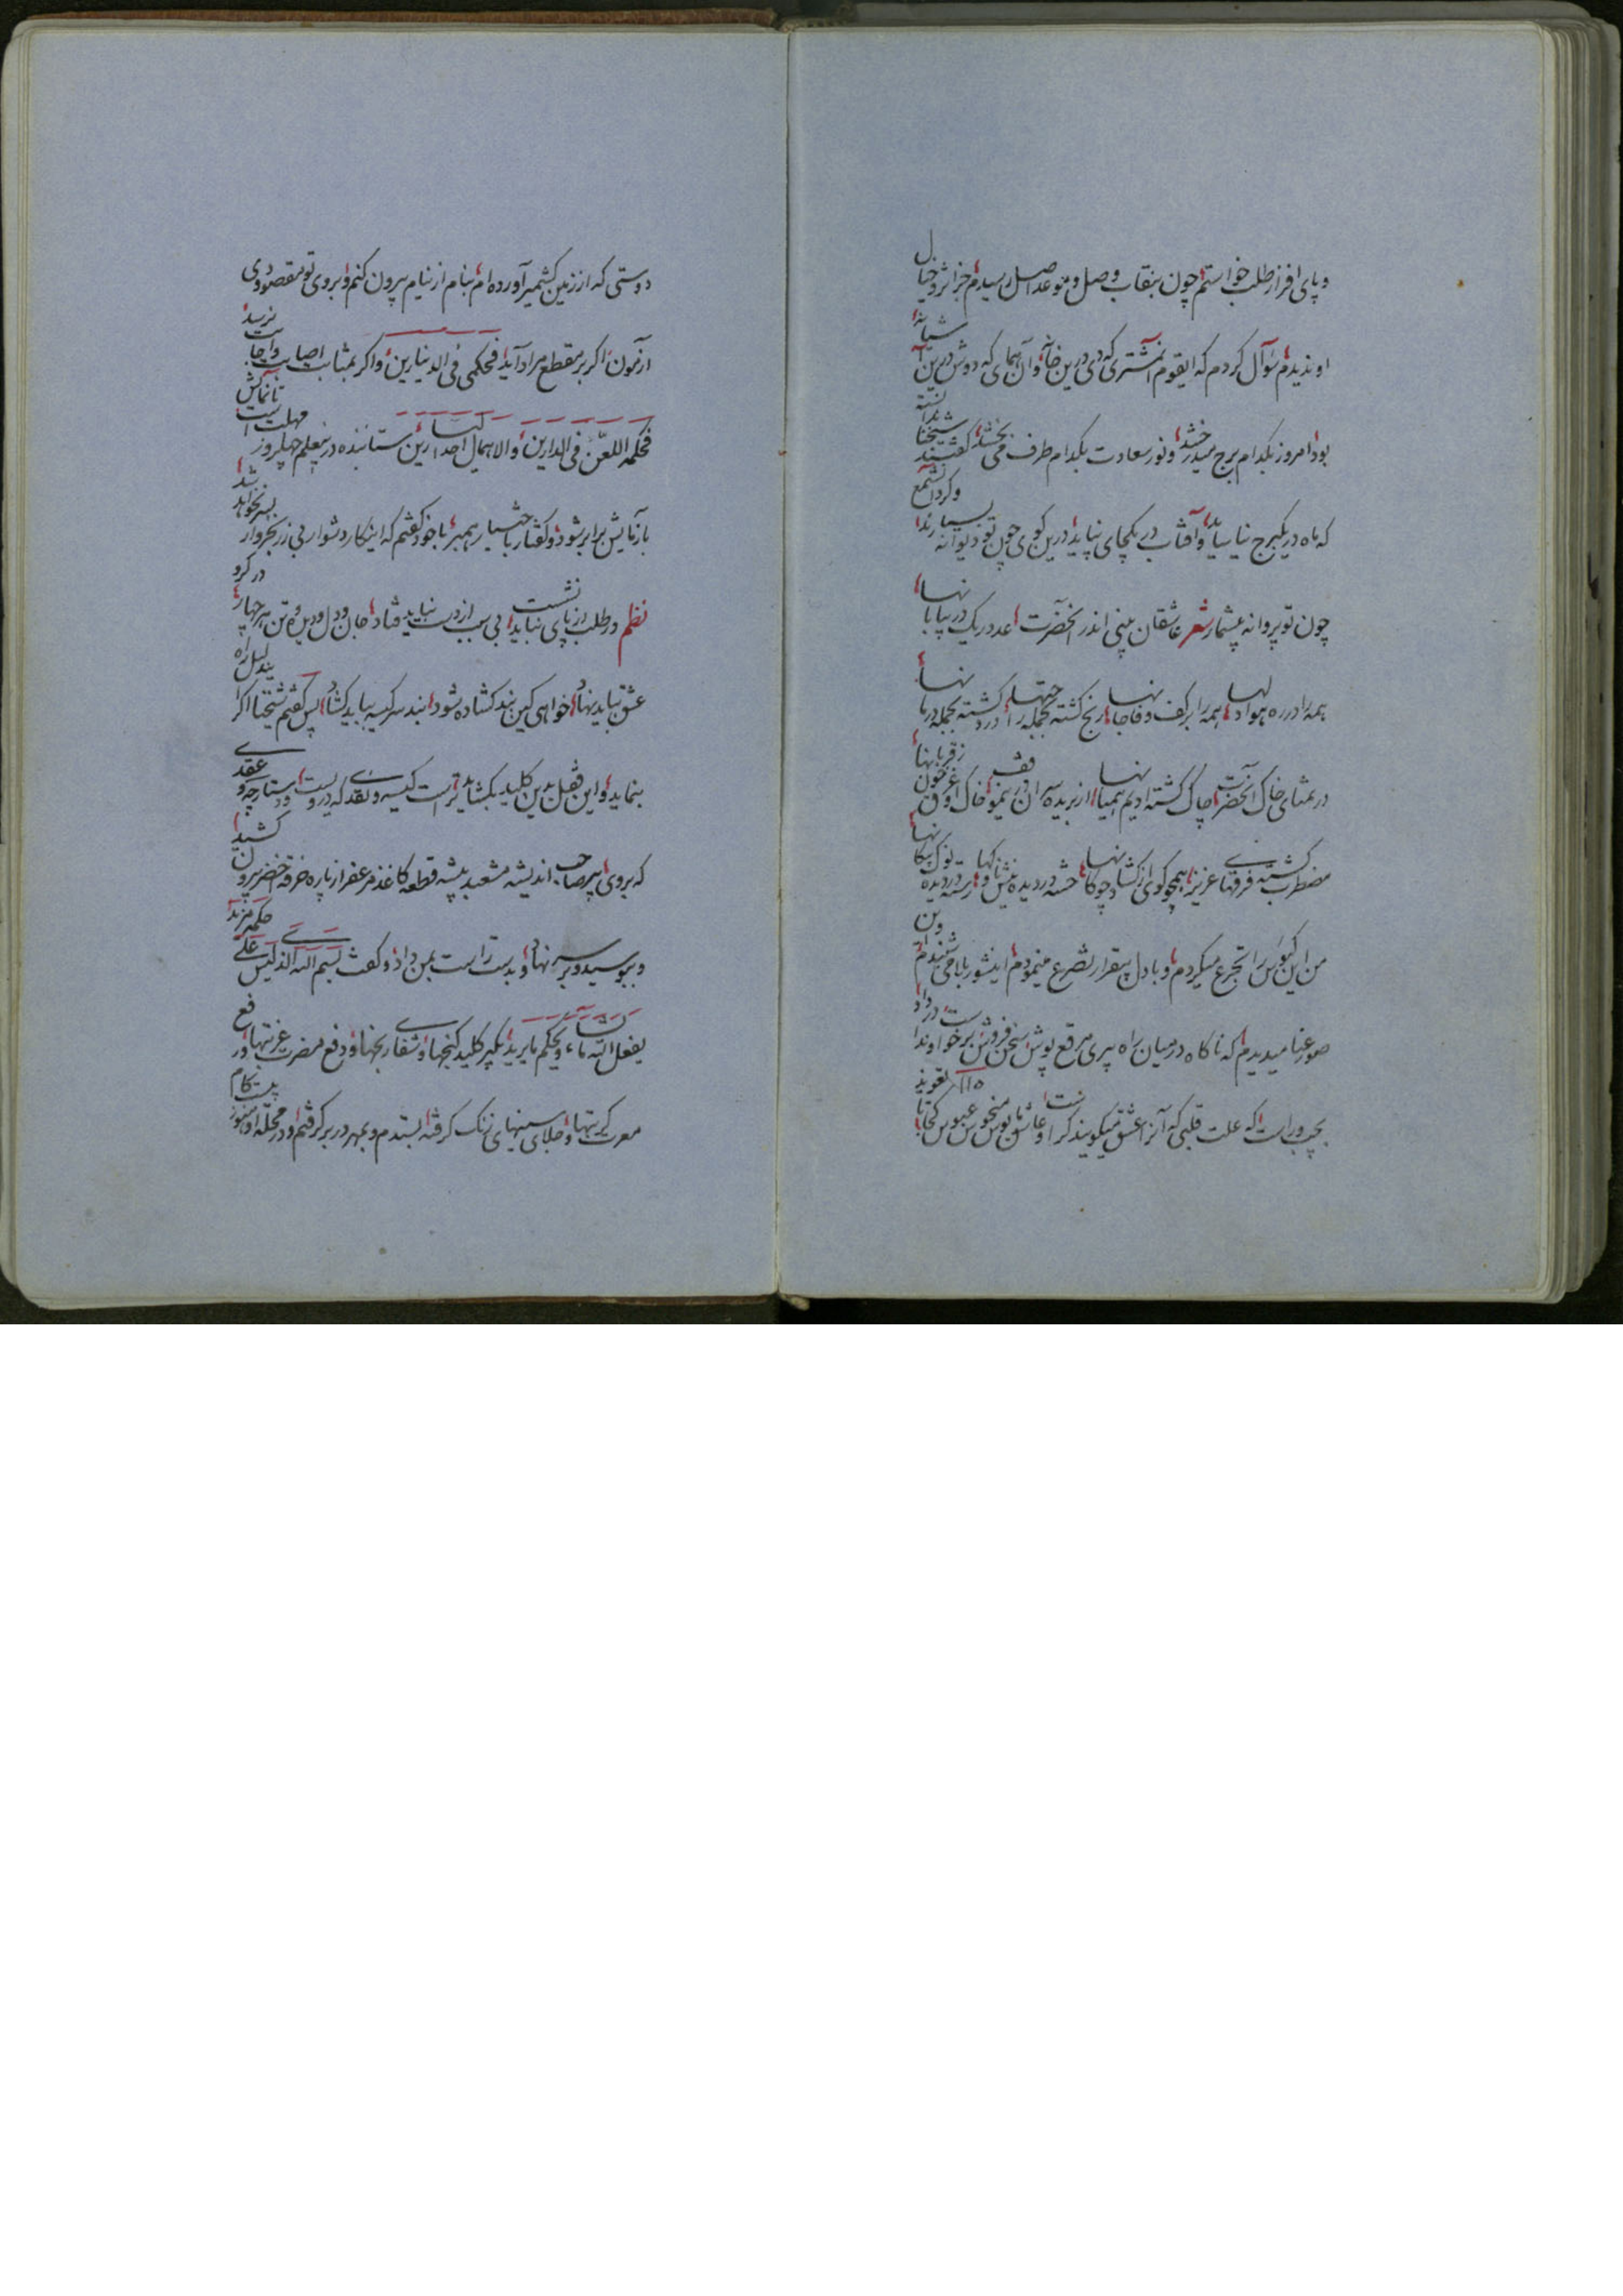 و پای افزار طلب خواستم چون بنقاب وصل و موعد اصل رسیدم جز اثر و خیال
او ندیدم سؤال کردم که ایقوم آنمشتری که دی درین خانه و آن همای که دوش درین آشیانه
بود امروز بکدام برج میدرخشد و نور سعادت بکدام طرف می بخشد گفتند شیخنا ندانسته
که ماه در یکبرج نیاساید و آفتاب در یکجای نپاید درین کوی چون تو دیوانه بسیارند و گرد آنشمع
چون تو پروانه بیشمار شعر عاشقان بینی اندر آنحضرت عدد ریک در بیابانها
همه را در ره هوا دلها همه را بر کف وفا جانها رنج گشته بجمله راحتها درد گشته بجمله درمانها
در تمنای خاک آنحضرت چاک گشته ادیم همیانها از بریده سران در رهنمو خاک او غرق خون ز قربانها
مضطرب گشته فرقهای عزیز همچو گوی از گشاد چوگانها خسته در دیده نیش و رسته در دیده نوک پیکانها
من این کؤس را تجرع میکردم و با دل بیقرار تضرع مینمودم اینشور بلا می شنیدم و این
صور عنا میدیدم که ناگاه در میان راه پیری مرقع پوش سخن فروش برخواست و ندا در داد
بچپ و راست که علت قلبی که آنرا عشق میگویند کراست و عاشق یوس منحوس عبوس کجاست تا تعویذ
دوستی که از زمین کشمیر آورده ام بنام از نیام بیرون کنم و بروی تو مقصود وی
آزمون اگر بر مقطع مراد آید فحکمی فی الدنیارین و اگر بمثابت اصابت و اجابت نرسد
فحکمه اللعن فی الدارین و الاهمال احد الرین ستاننده در بیعلم چهل روز مهلت است تا نمایش
بازمایش برابر شود و گفتار با خشیار همبر با خود گفتم که اینکار دشوار بی زر بخروار بسر نخواهد شد
نظم در طلب از پای نباید نشست بی سبب از دست نباید فتاد جان و دل و دین و تن هر چهار در گرو
عشق نباید نهاد خواهی کین بند گشاده شود بند سر کیسه بباید گشاد پس گفتم شیخنا اگر بندلیل راه
بنماید و این قفل بدین کلید بگشاید تراست کیسه و نقدی که در وست و دستارچه و عقدی
که بروی پیر صاحب اندیشه مشعبد پیشه قطعه کاغذ مزعفر از پاره خرقه اخضر بیرون کشید
و ببوسید و بر سر نهاد و بدست راست بمن داد و گفت بسم الله الذی لیس علی حکمه مزید
یفعل الله ما یشاء و یحکم ما یرید بگیر کلید گنجها و شفای رنجها و دفع مضرت عزبتها و رفع
معرت کربتها و جلای سینهای زنگ گرفته بستدم و بمهر در بر گرفتم و در محله او هنوز بیست گام